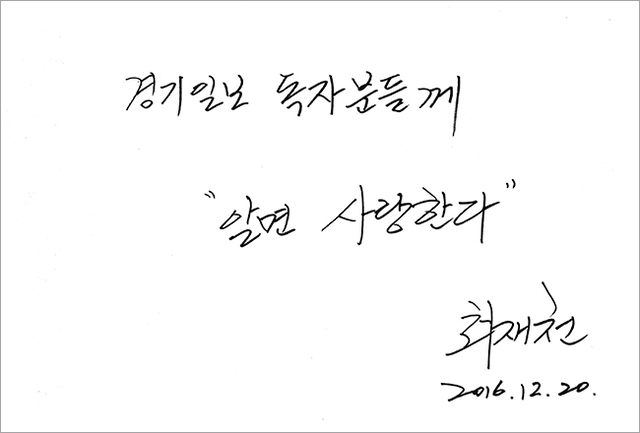 경기일보 독자분들께
"알면 사랑한다"
최재천
2016.12.20.